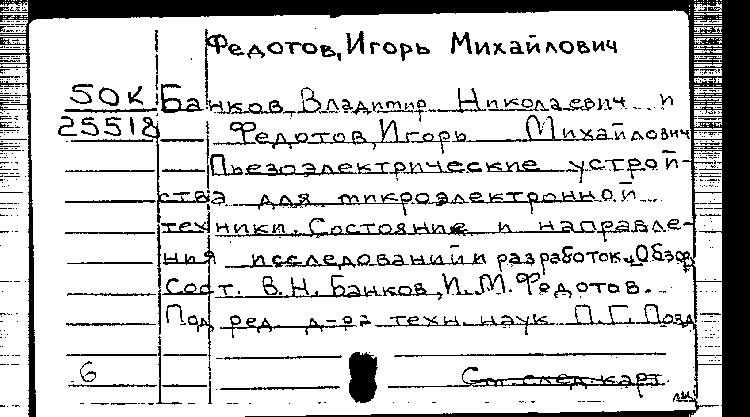 Федотов, Игорь Михайлович
50К Банков, Владимир Николаевич и
25518 Федотов, Игорь Михайлович
Пьезоэлектрические устрой-
ства для микроэлектронной
техники. Состояние и направле-
ния исследований и разработок. Обзор
Сост. В.Н. Банков, И.М. Федотов.
Под ред. д-ра техн. наук П.Г. Позд
6 См след. карт.